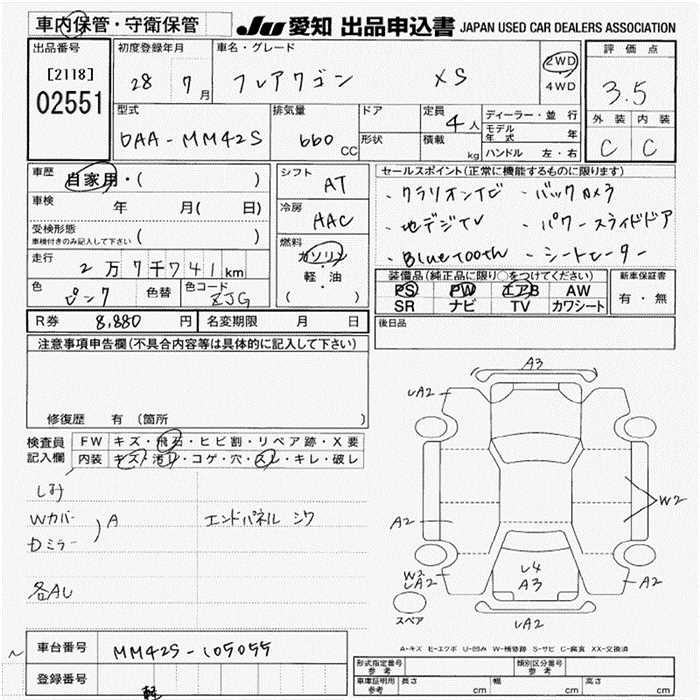 車内保管・守衛保管
JU 愛知 出品申込書 JAPAN USED CAR DEALERS ASSOCIATION
出品番号
[2118]
02551
初度登録年月
28 7月
車名・グレード
フレアワゴン XS
2WD
4WD
評価点
3.5
外装 内装
C C
型式
DAA-MM42S
排気量
660 CC
ドア
形状
定員
4人
積載
kg
ディーラー・並行
モデル年式 年
ハンドル 左・右
車歴
自家用・( )
車検 年 月( 日)
受検形態
車検付きのみ記入して下さい ( )
走行
2万7千741km
色
ピンク
色替
色コード
ZJG
シフト
AT
冷房
AAC
燃料
ガソリン
・
軽・油
・
( )
セールスポイント(正常に機能するものに限ります)
・クラリオンTV ・バックカメラ
・地デジTV ・パワースライドドア
・Bluetooth ・シートヒーター
装備品(純正品に限り○をつけてください)
PS PW エアB AW
SR ナビ TV カワシート
新車保証書
有・無
R券 8,880円 名変期限 月 日
後日品
注意事項申告欄(不具合内容等は具体的に記入して下さい)
修復歴 有(箇所 )
検査員記入欄
FW キズ・飛石・ヒビ割・リペア跡・X要
内装 キズ・汚れ・コゲ・穴・スレ・キレ・破レ
しみ
Wカバー
Dミラー
) A
エンドパネル シワ
各AU
A3
LA2
A2
W2
W2
LA2
L4
A3
A2
LA2
スペア
A-キズ E-エクボ U-凹み W-補修跡 S-サビ C-腐食 XX-交換済
車台番号
MM42S-105055
登録番号
軽
形式指定番号 参考
類別区分番号 参考
車庫証明用 参考 長さ cm 幅 cm 高さ cm